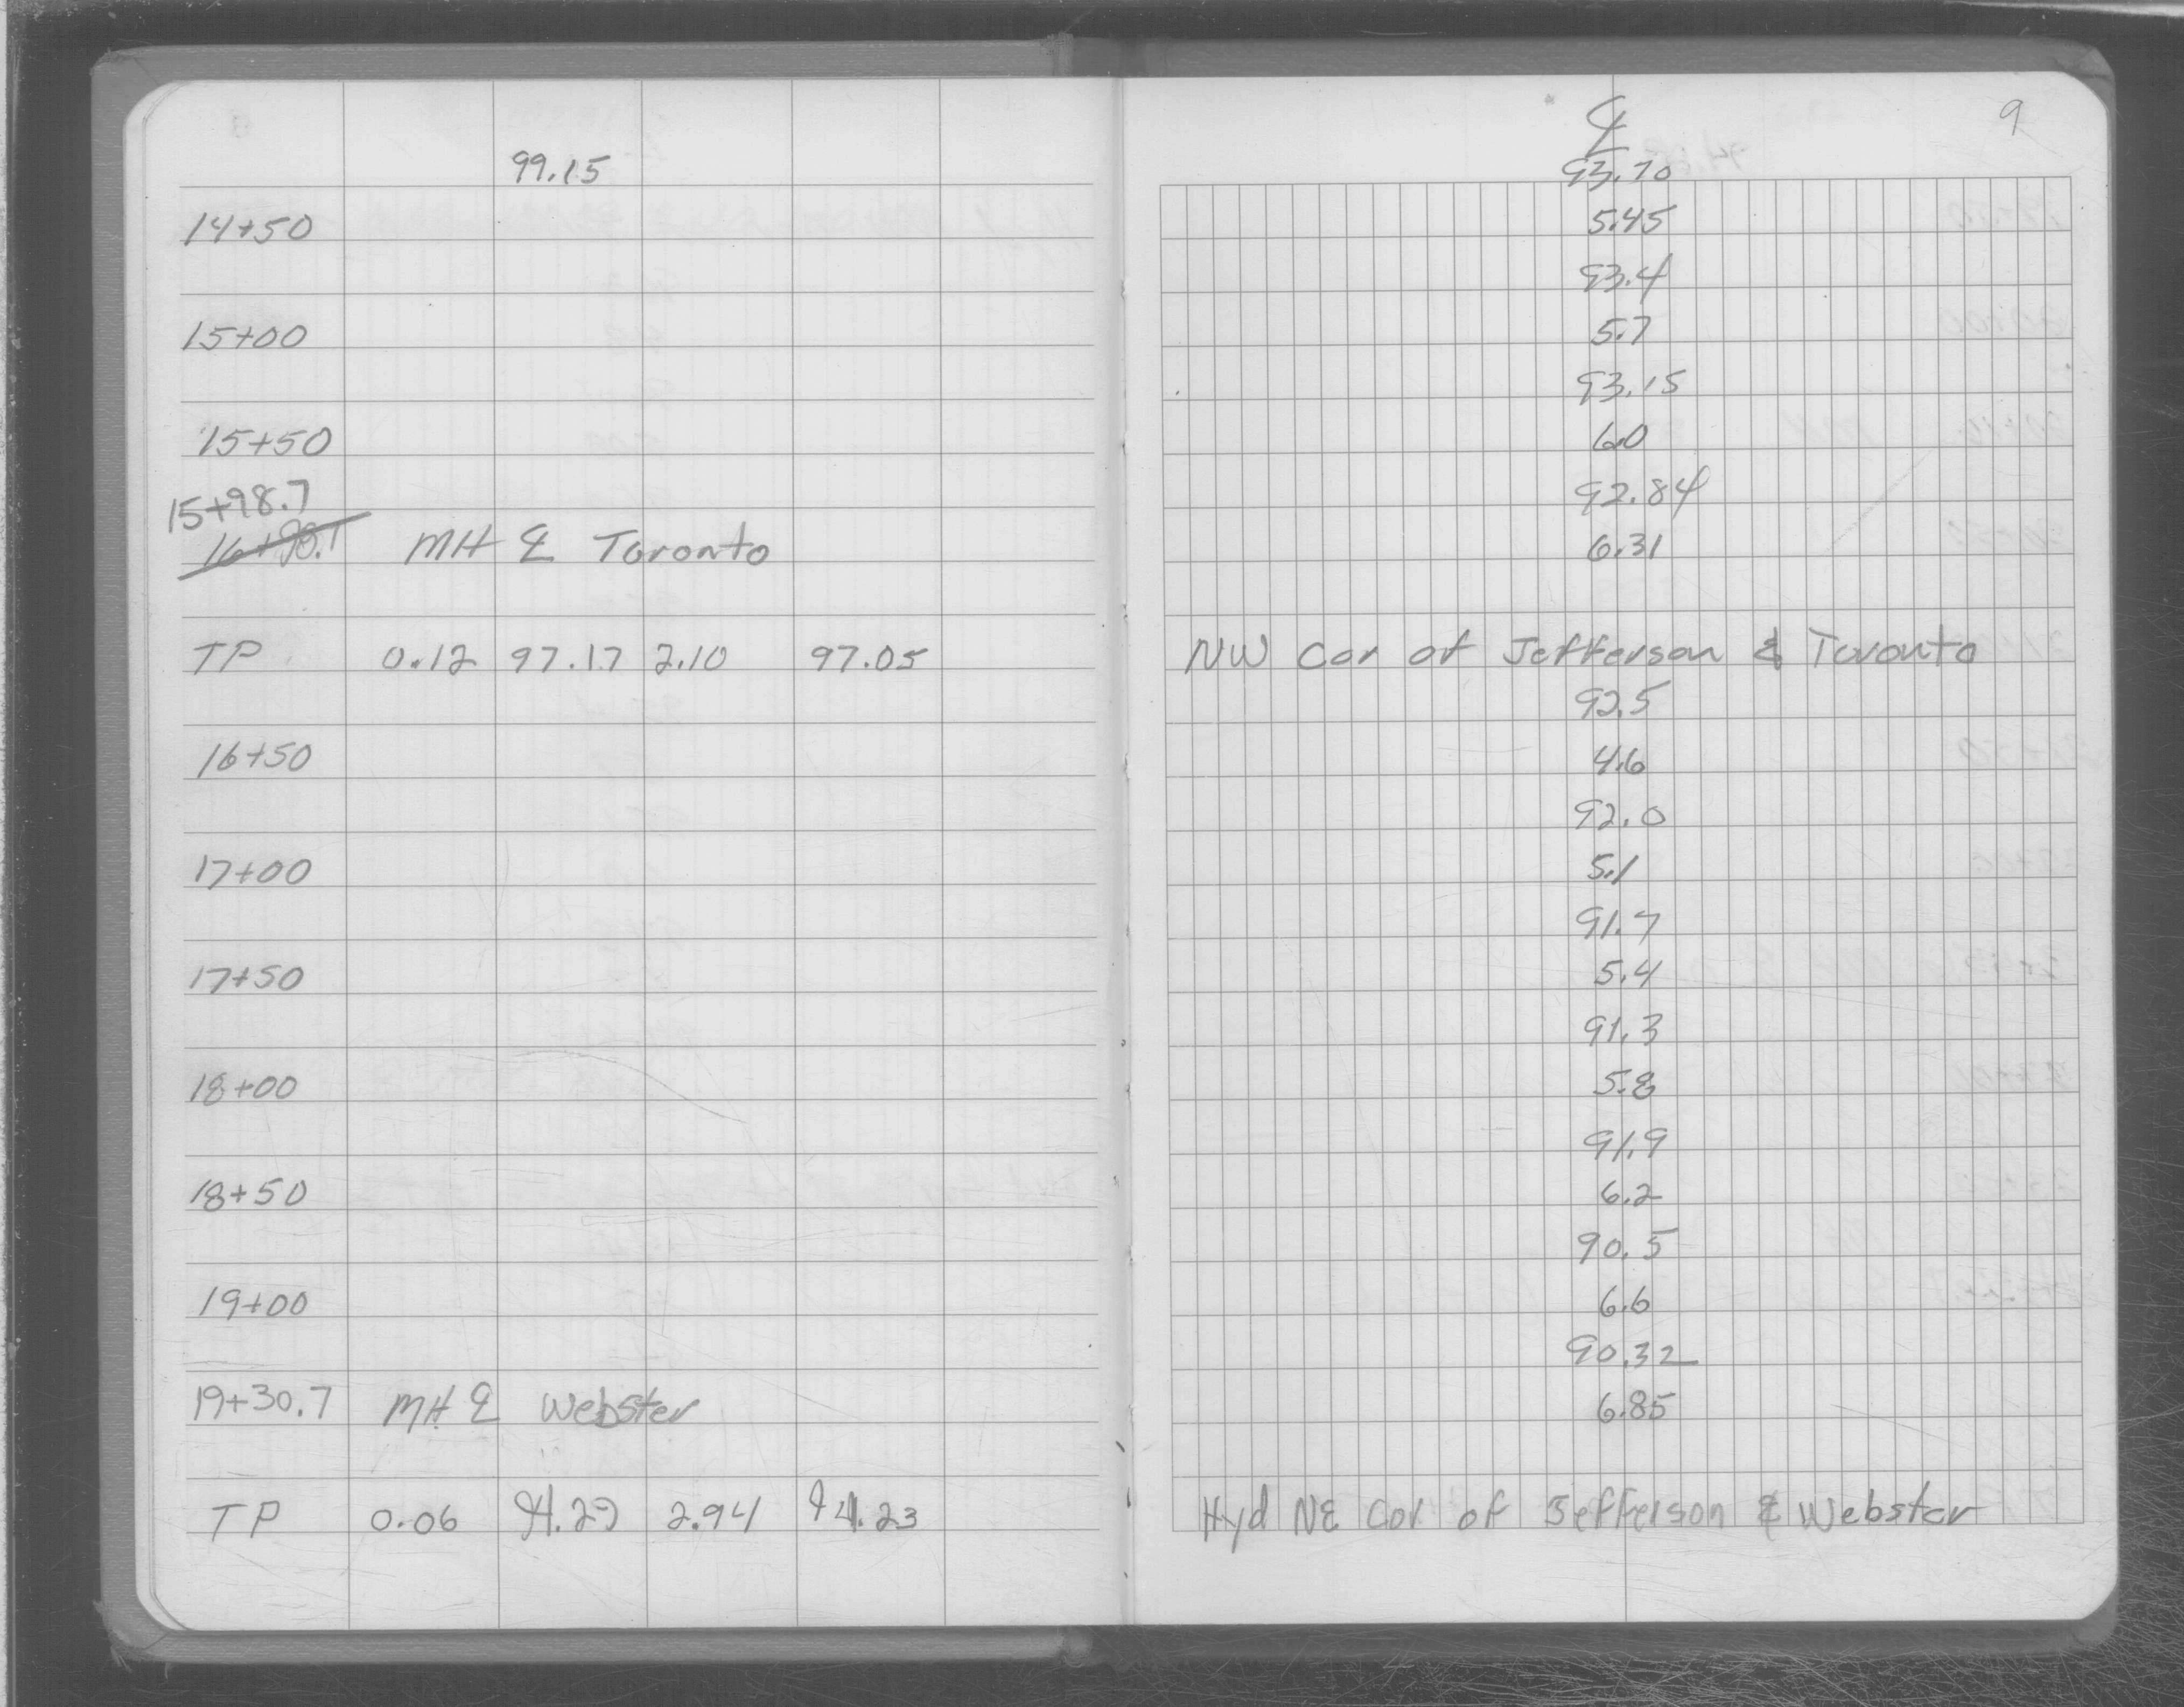 9
℄
99.15 93.70
14+50 5.45
93.4
15+00 5.7
93.15
15+50 6.0
15+98.7 92.84
16+98.7 MH ℄ Toronto 6.31
TP 0.12 97.17 2.10 97.05 NW Cor of Jefferson & Toronto
92.5
16+50 4.6
92.0
17+00 5.1
91.7
17+50 5.4
91.3
18+00 5.8
91.9
18+50 6.2
90.5
19+00 6.6
90.32
19+30.7 MH ℄ Webster 6.85
TP 0.06 94.29 2.94 94.23 Hyd NE Cor of Jefferson & Webster